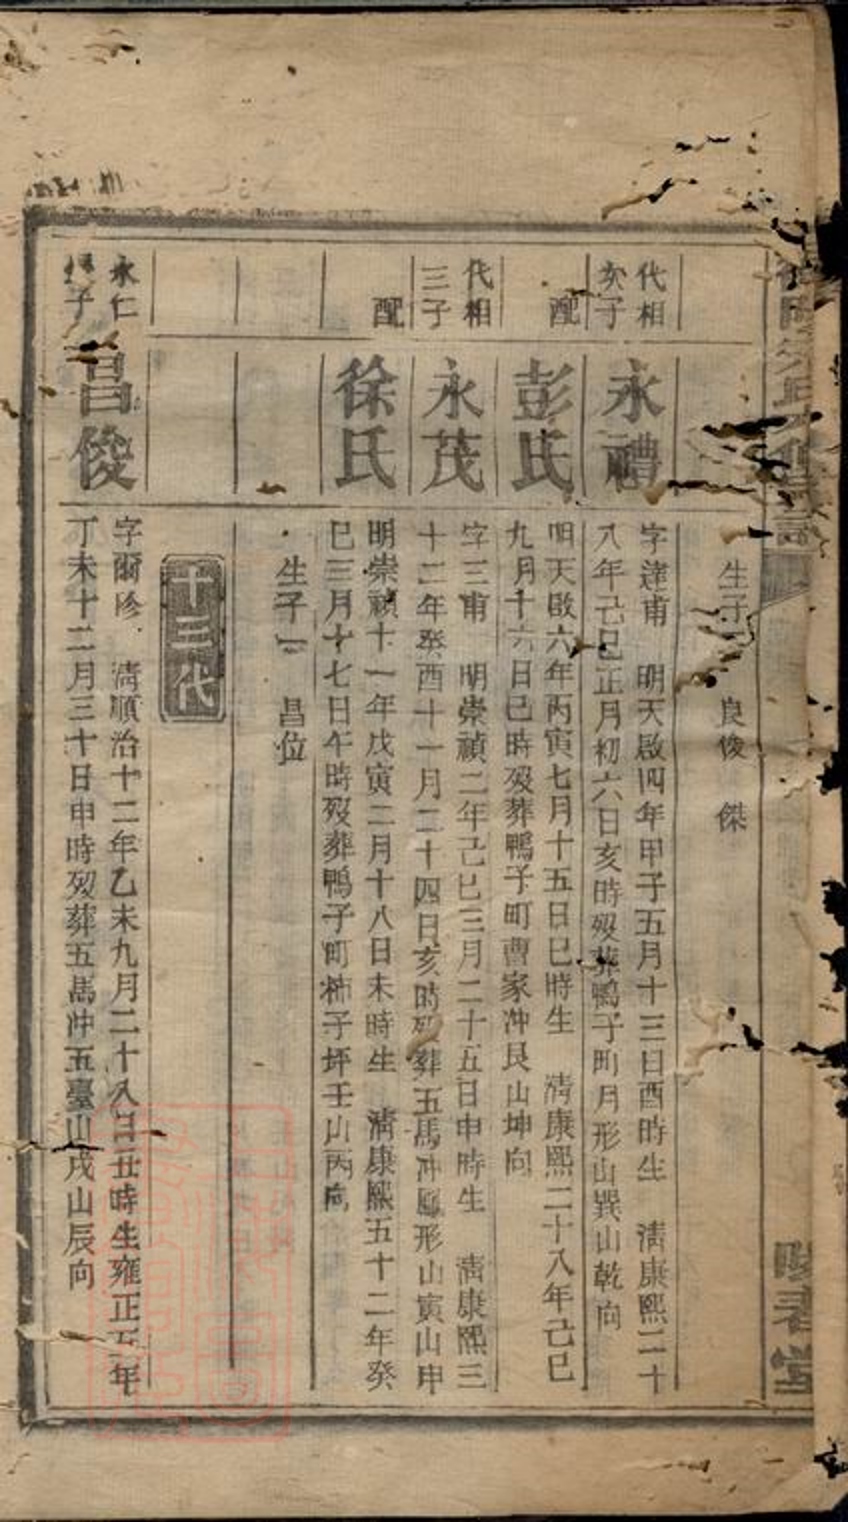 生子二　良俊　傑
代相
次子
永禮
字達甫　明天啟四年甲子五月十三日酉時生　清康熙二十
八年己巳正月初六日亥時歿葬鴨子町月形山巽山乾向
配
彭氏
明天啟六年丙寅七月十五日巳時生　清康熙二十八年己巳
九月十六日巳時歿葬鴨子町曹家冲艮山坤向
代相
三子
永茂
字三甫　明崇禎二年己巳三月二十五日申時生　清康熙三
十二年癸酉十一月二十四日亥時歿葬五馬冲鳳形山寅山申
配
徐氏
明崇禎十一年戊寅二月十八日未時生　清康熙五十二年癸
巳三月十七日午時歿葬鴨子町柿子坪壬山丙向
生子一　昌位
十三代
永仁
子
昌俊
字爾珍　清順治十二年乙未九月二十八日丑時生雍正五年
丁未十二月三十日申時歿葬五馬冲五臺山戌山辰向
堂